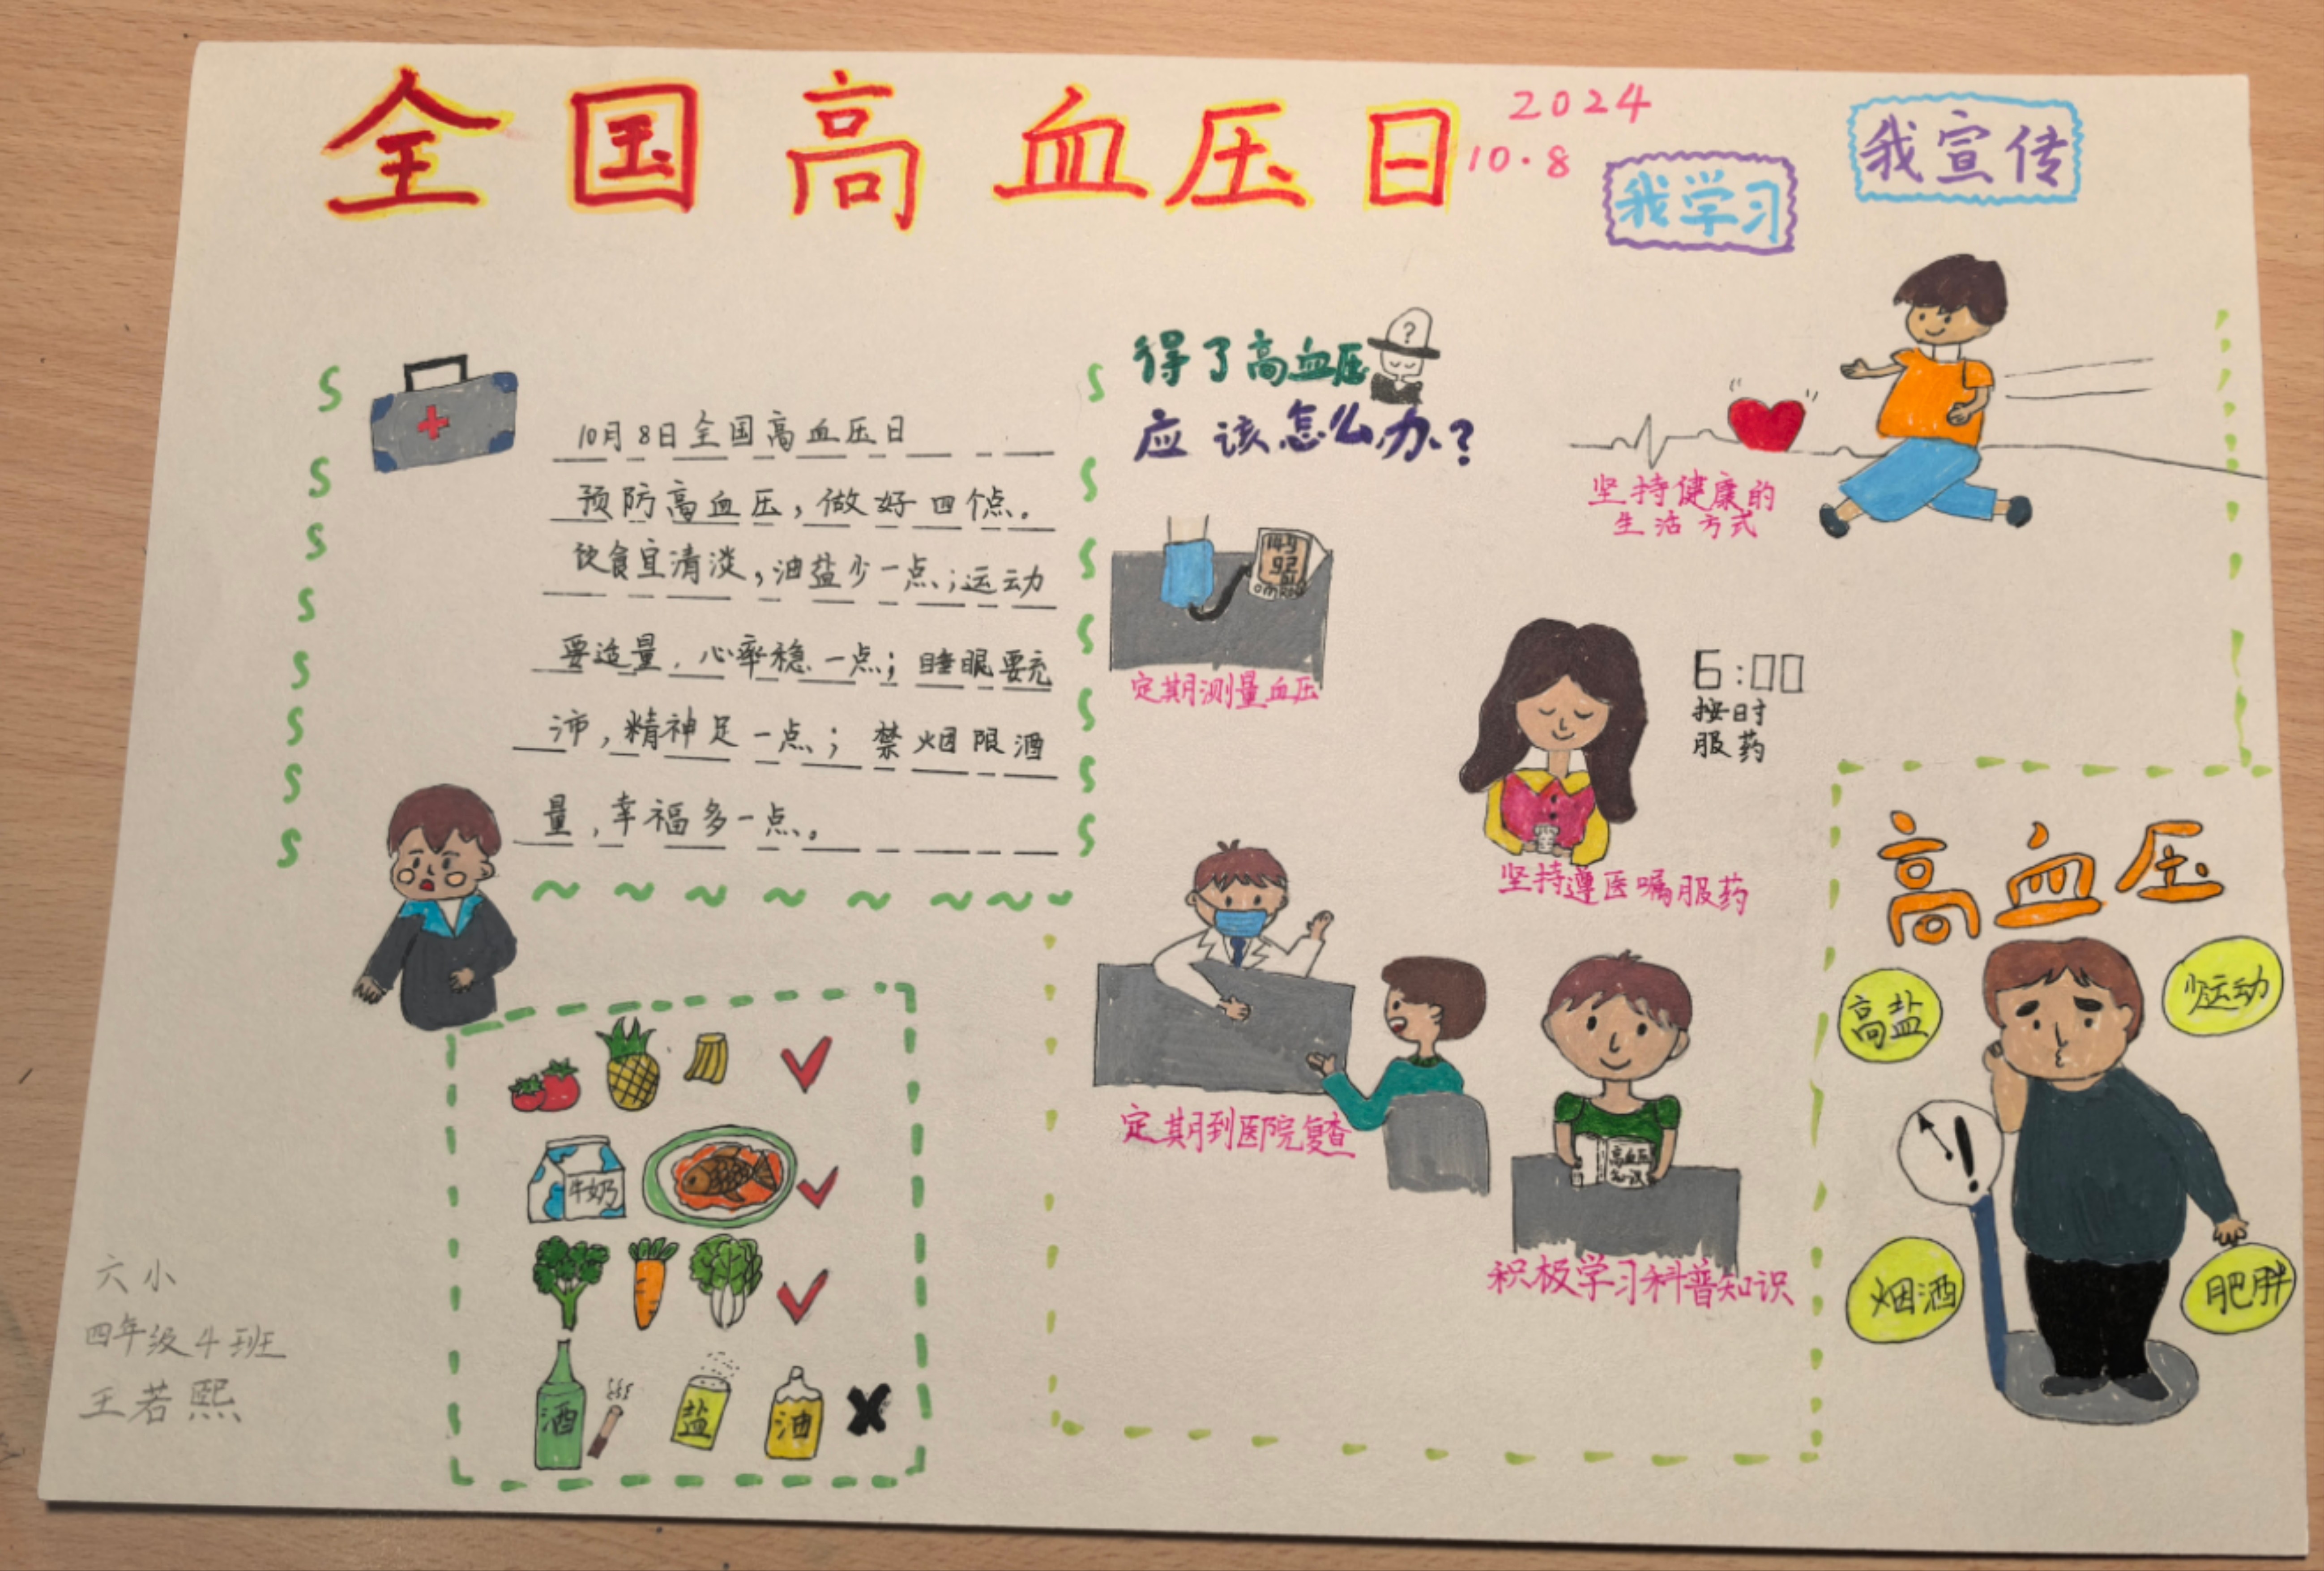 全国高血压日
2024
10·8
我学习
我宣传
10月8日全国高血压日
预防高血压，做好四个点。
饮食宜清淡，油盐少一点；运动
要适量，心率稳一点；睡眠要充
沛，精神足一点；禁烟限酒
量，幸福多一点。
得了高血压
?
应该怎么办？
坚持健康的
生活方式
92
定期测量血压
6:00
按时
服药
坚持遵医嘱服药
定期到医院复查
高血压
知识
积极学习科普知识
高血压
高盐
少运动
!
烟酒
肥胖
牛奶
酒
盐
油
六小
四年级4班
王若熙